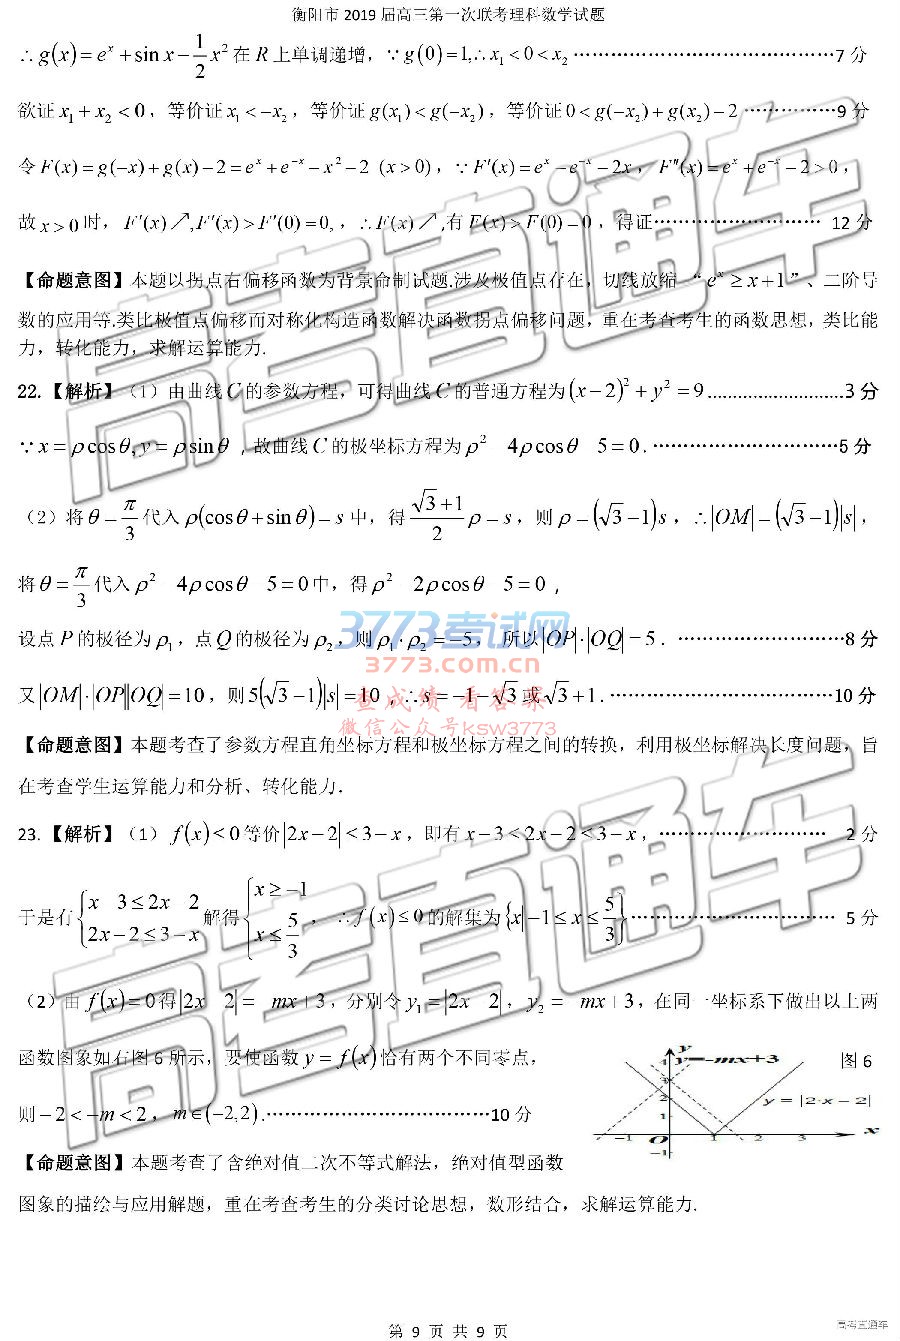 衡阳市 2019 届高三第一次联考理科数学试题
∴ g(x) = e^x + sin x − 1/2 x² 在 R 上单调递增，∵ g(0) = 1, ∴ x₁ < 0 < x₂ ……………………………………7 分
欲证 x₁ + x₂ < 0，等价证 x₁ < −x₂，等价证 g(x₁) < g(−x₂)，等价证 0 < g(−x₂) + g(x₂) − 2 ……………9 分
令 F(x) = g(−x) + g(x) − 2 = e^x + e^−x − x² − 2 (x > 0)，∵ F′(x) = e^x − e^−x − 2x，F″(x) = e^x + e^−x − 2 > 0，
故 x > 0 时，F′(x) ↗, F′(x) > F′(0) = 0,，∴ F(x) ↗,有 F(x) > F(0) = 0，得证……………………… 12 分
【命题意图】本题以拐点右偏移函数为背景命制试题.涉及极值点存在，切线放缩 “ e^x ≥ x + 1 ”、二阶导
数的应用等.类比极值点偏移而对称化构造函数解决函数拐点偏移问题，重在考查考生的函数思想，类比能
力，转化能力，求解运算能力.
22.【解析】（1）由曲线 C 的参数方程，可得曲线 C 的普通方程为 (x − 2)² + y² = 9 ...........................3 分
∵ x = ρ cos θ, y = ρ sin θ ，故曲线 C 的极坐标方程为 ρ² 4ρ cos θ 5 = 0 . …………………………5 分
（2）将 θ = π/3 代入 ρ(cos θ + sin θ) = s 中，得 (√3 + 1)/2 ρ = s，则 ρ = (√3 − 1)s，∴ |OM| = (√3 − 1)|s|，
将 θ = π/3 代入 ρ² 4ρ cos θ 5 = 0 中，得 ρ² 2ρ cos θ 5 = 0，
设点 P 的极径为 ρ₁，点 Q 的极径为 ρ₂，则 ρ₁ · ρ₂ = −5，所以 |OP| · |OQ| = 5 . ………………………8 分
又 |OM| · |OP||OQ| = 10，则 5(√3 − 1)|s| = 10，∴ s = −1 − √3 或 √3 + 1 . ………………………………10 分
【命题意图】本题考查了参数方程直角坐标方程和极坐标方程之间的转换，利用极坐标解决长度问题，旨
在考查学生运算能力和分析、转化能力．
23.【解析】（1） f(x) < 0 等价 |2x − 2| < 3 − x，即有 x − 3 < 2x − 2 < 3 − x，……………………… 2 分
于是有 { x 3 ≤ 2x 2 2x − 2 ≤ 3 − x 解得 { x ≥ −1 x ≤ 5/3 ， ∴ f(x) ≤ 0 的解集为 {x | −1 ≤ x ≤ 5/3} …………………………… 5 分
（2）由 f(x) = 0 得 |2x 2| = mx + 3，分别令 y₁ = |2x 2|，y₂ = mx + 3，在同一坐标系下做出以上两
函数图象如右图 6 所示，要使函数 y = f(x) 恰有两个不同零点，
则 −2 < −m < 2，m ∈ (−2,2) .………………………………10 分
【命题意图】本题考查了含绝对值二次不等式解法，绝对值型函数
图象的描绘与应用解题，重在考查考生的分类讨论思想，数形结合，求解运算能力.
图 6
y
y=-mx+3
y = |2·x − 2|
4
3
2
1
−1
O
1
2
3
x
−1
高考直通车
3773考试网
3773.com.cn
查成绩 看答案
微信公众号ksw3773
高考直通车
第 9 页 共 9 页
高考直通车